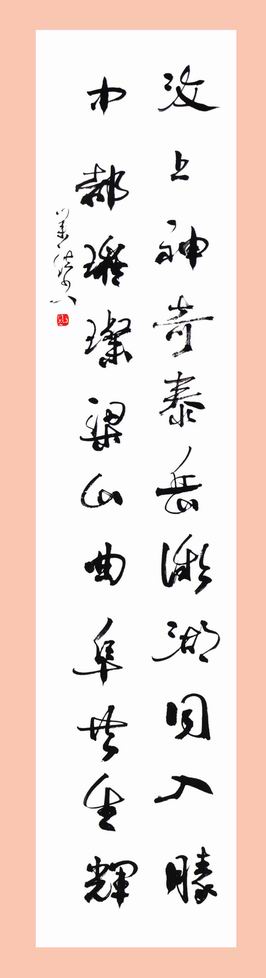 汶上神奇泰岳微湖同入勝
中都璀璨梁山曲阜共生輝